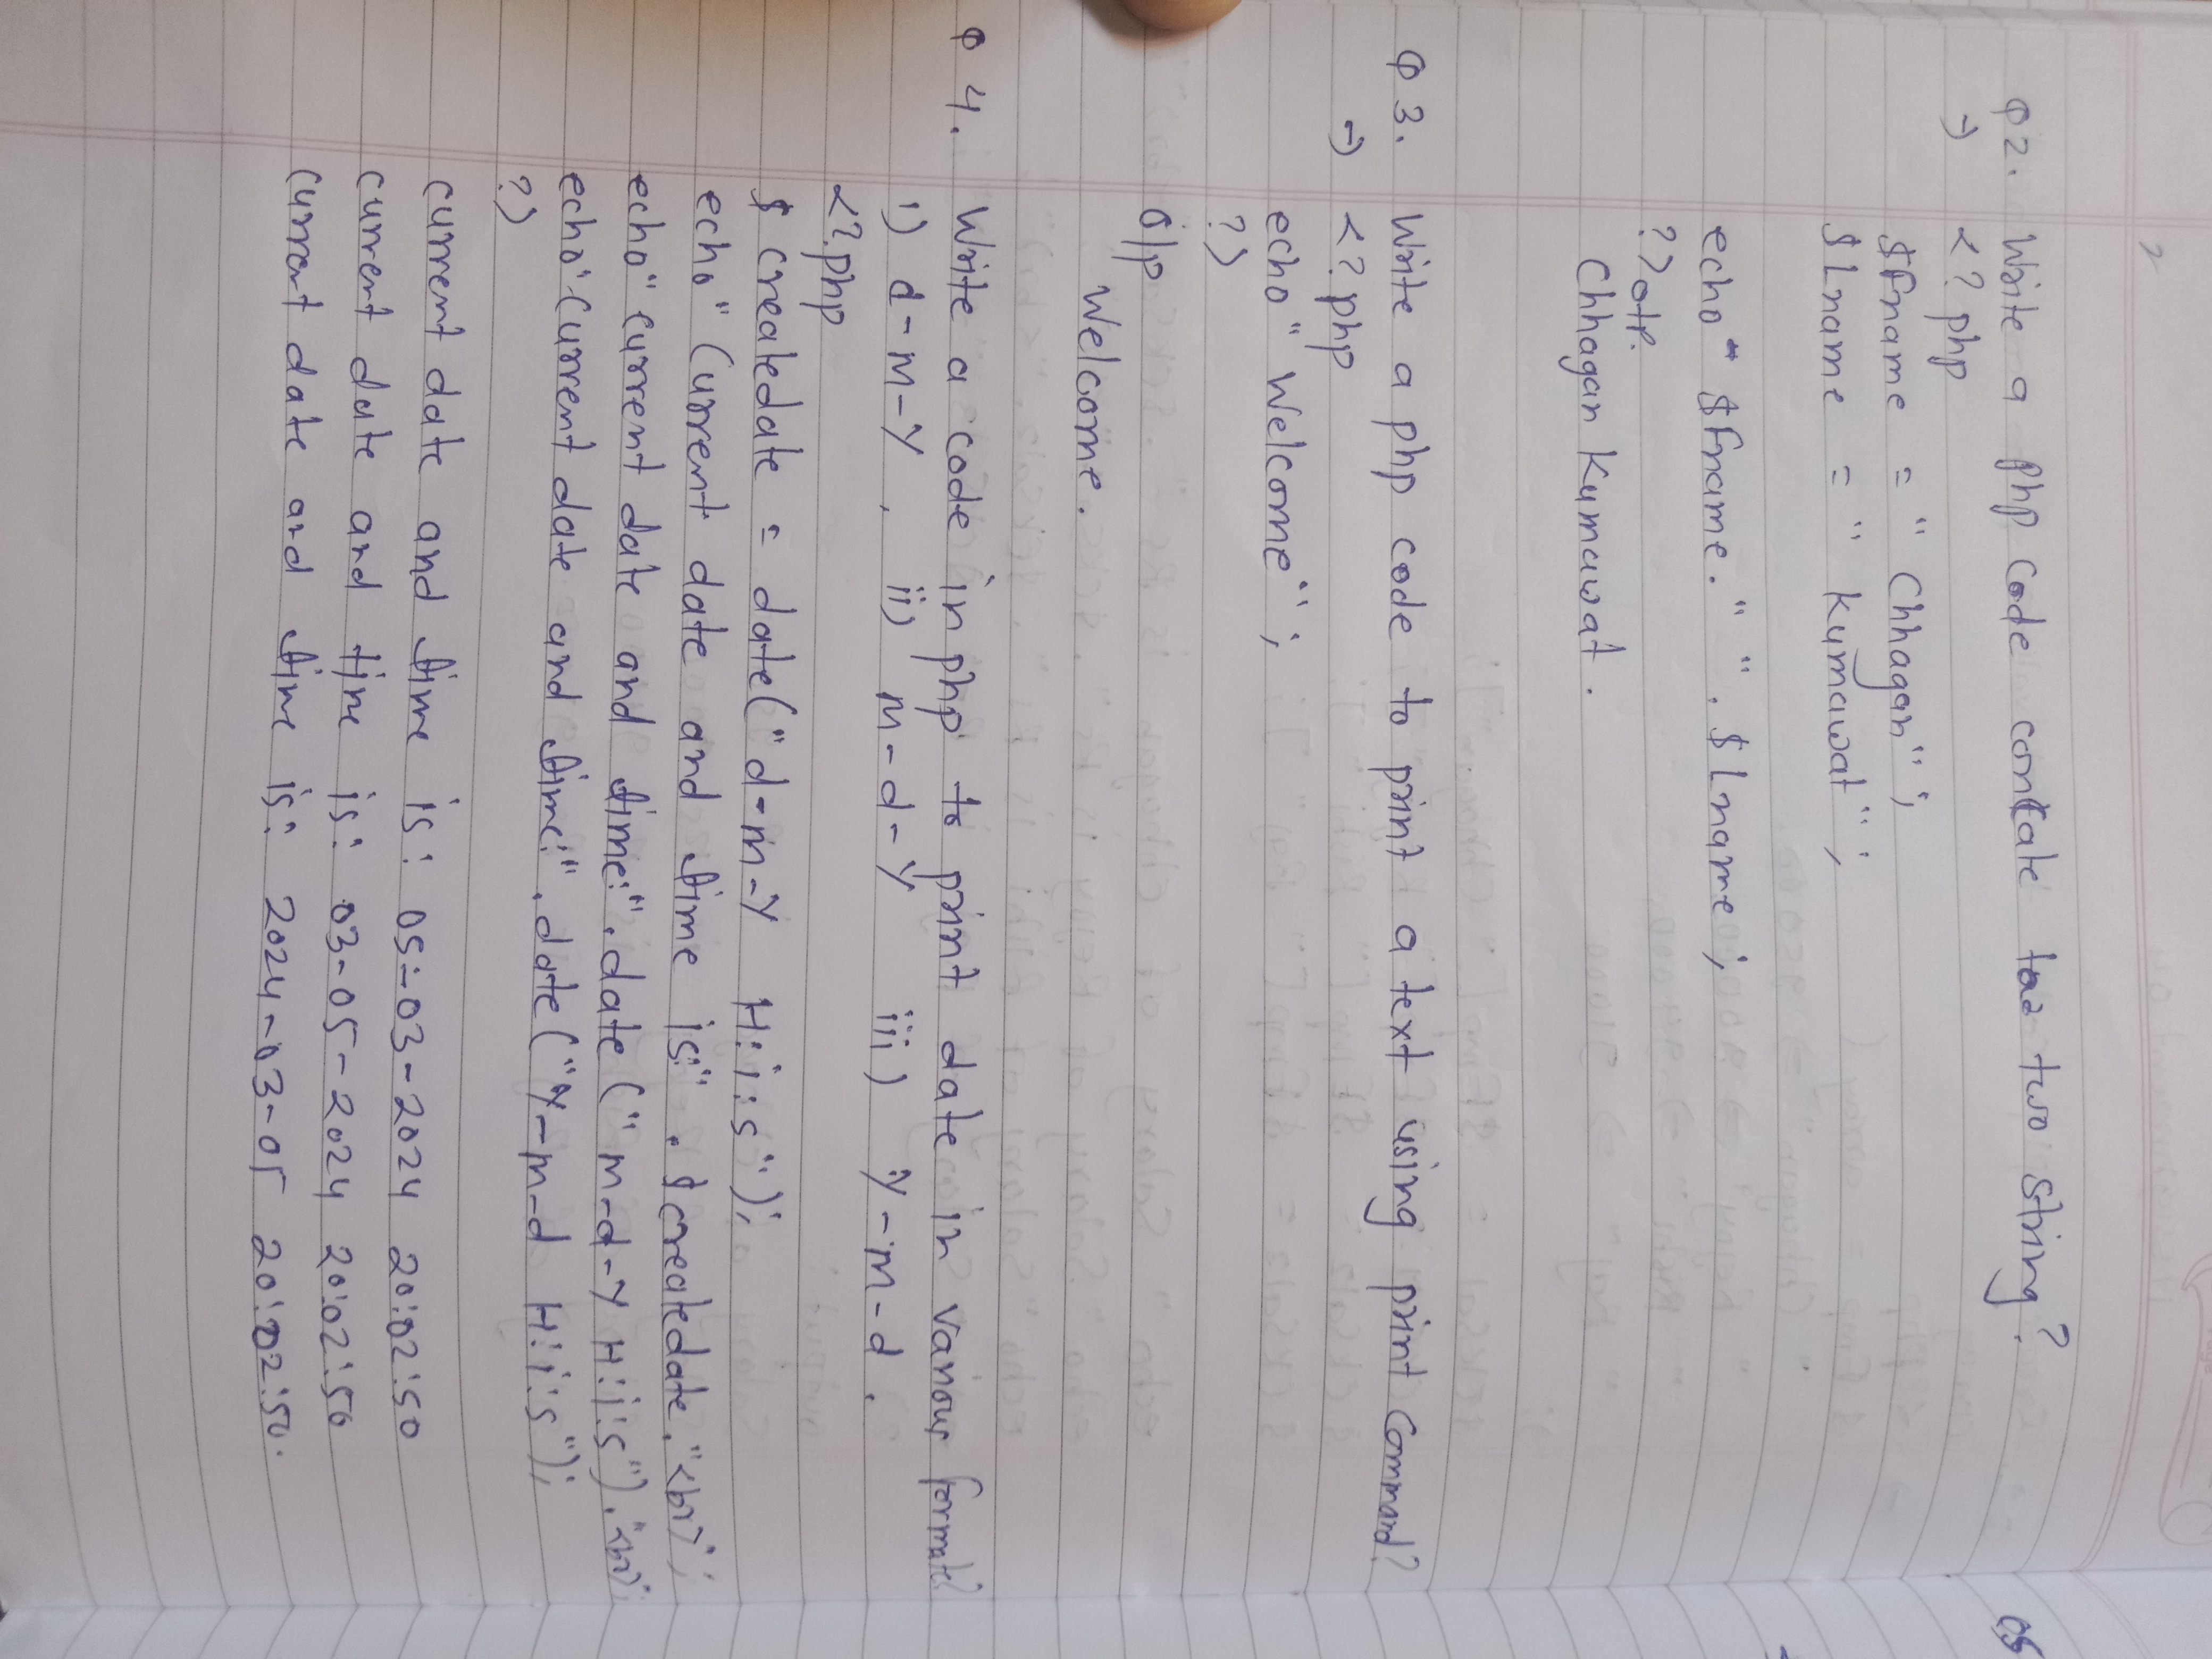 2
Q2. Write a php code concate two string?
→ <?php
$fname = "Chhagan";
$Lname = "Kumawat";
echo $fname." ".$Lname;
?> otp.
Chhagan Kumawat.
Q3. Write a php code to print a text using print Command?
→ <?php
echo "Welcome";
?>
o/p
Welcome.
Q4. Write a code in php to print date in various format
i) d-m-Y, ii) m-d-Y iii) Y-m-d.
<?php
$createdate = date("d-m-Y H:i:s");
echo "Current date and time is:" . $createdate."<br>;
echo "current date and time:".date("m-d-Y H:i:s")."<br>;
echo "Current date and time:".date("Y-m-d H:i:s");
?>
current date and time is: 05-03-2024 20:02:50
current date and time is: 03-05-2024 20:02:50
current date and time is: 2024-03-05 20:02:50.